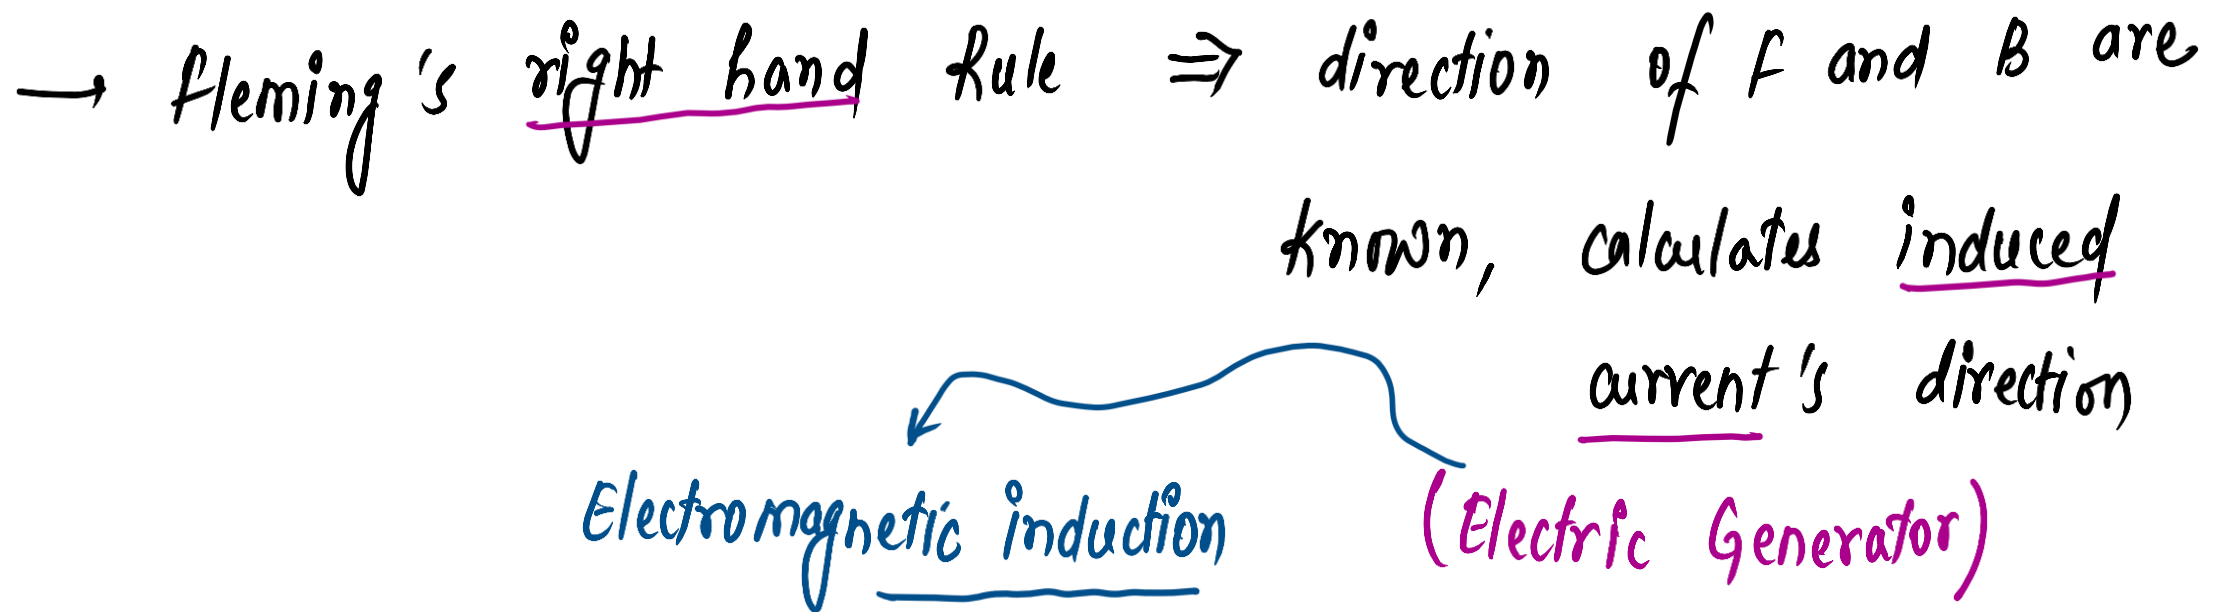 → Fleming's right hand Rule ⇒ direction of F and B are
known, calculates induced
current's direction
Electromagnetic induction (Electric Generator)